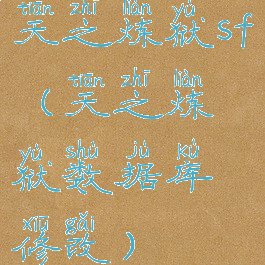 tiān zhī liàn yù
天之炼狱sf
tiān zhī liàn
（天之炼
yù shù jù kù
狱数据库
xiū gǎi
修改）